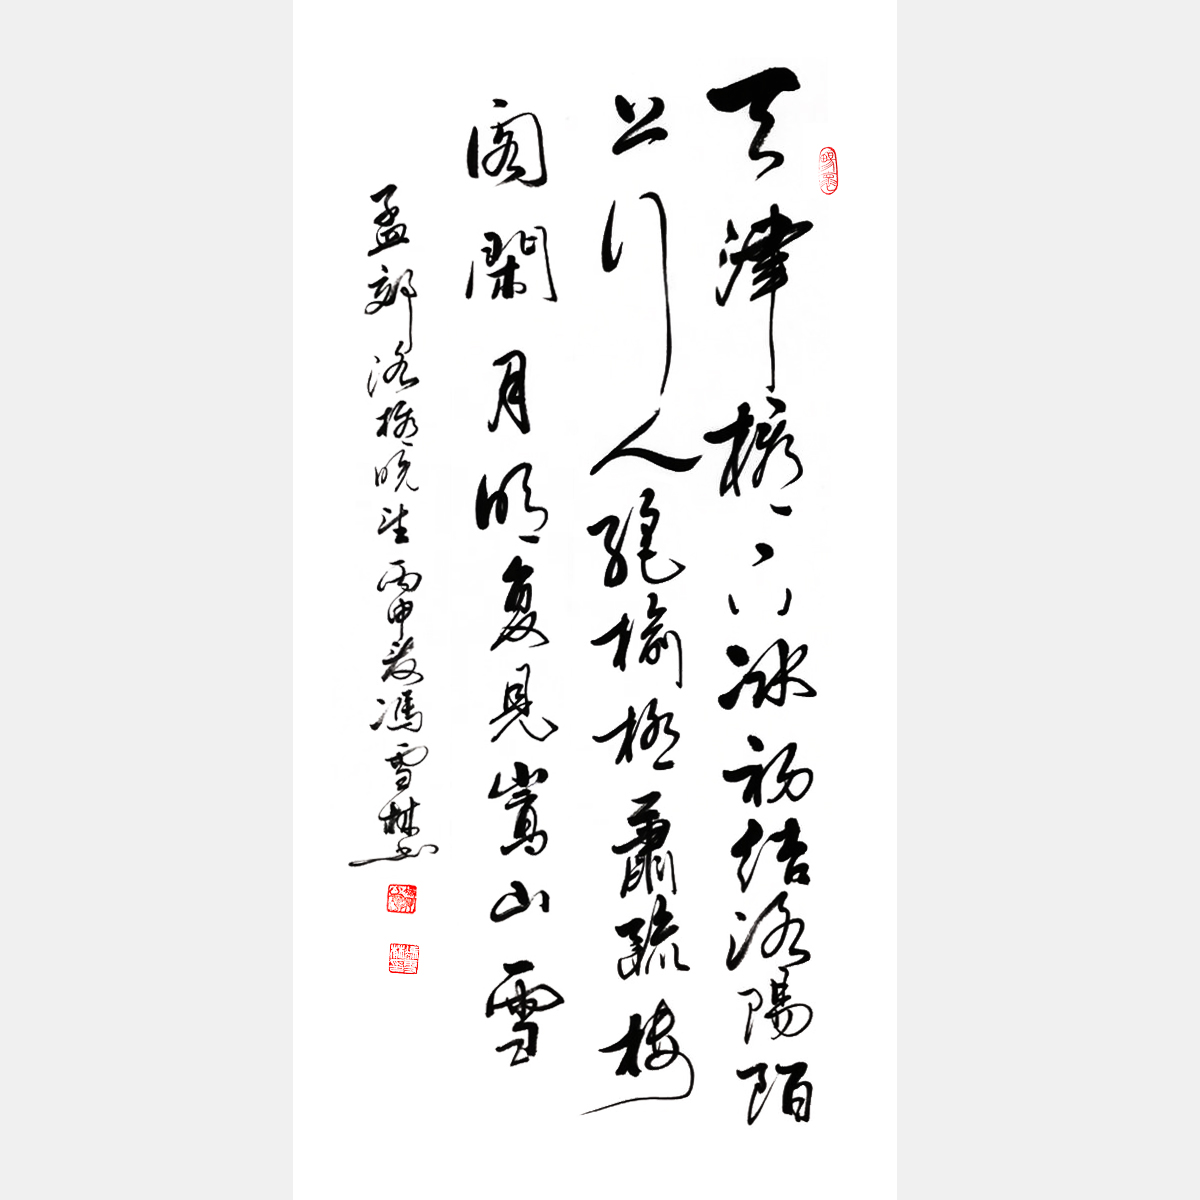 天津橋下冰初結洛陽陌
上行人絕榆柳蕭疏樓
閣閑月明复見嵩山雪
孟郊洛橋晚望丙申馮雪林書